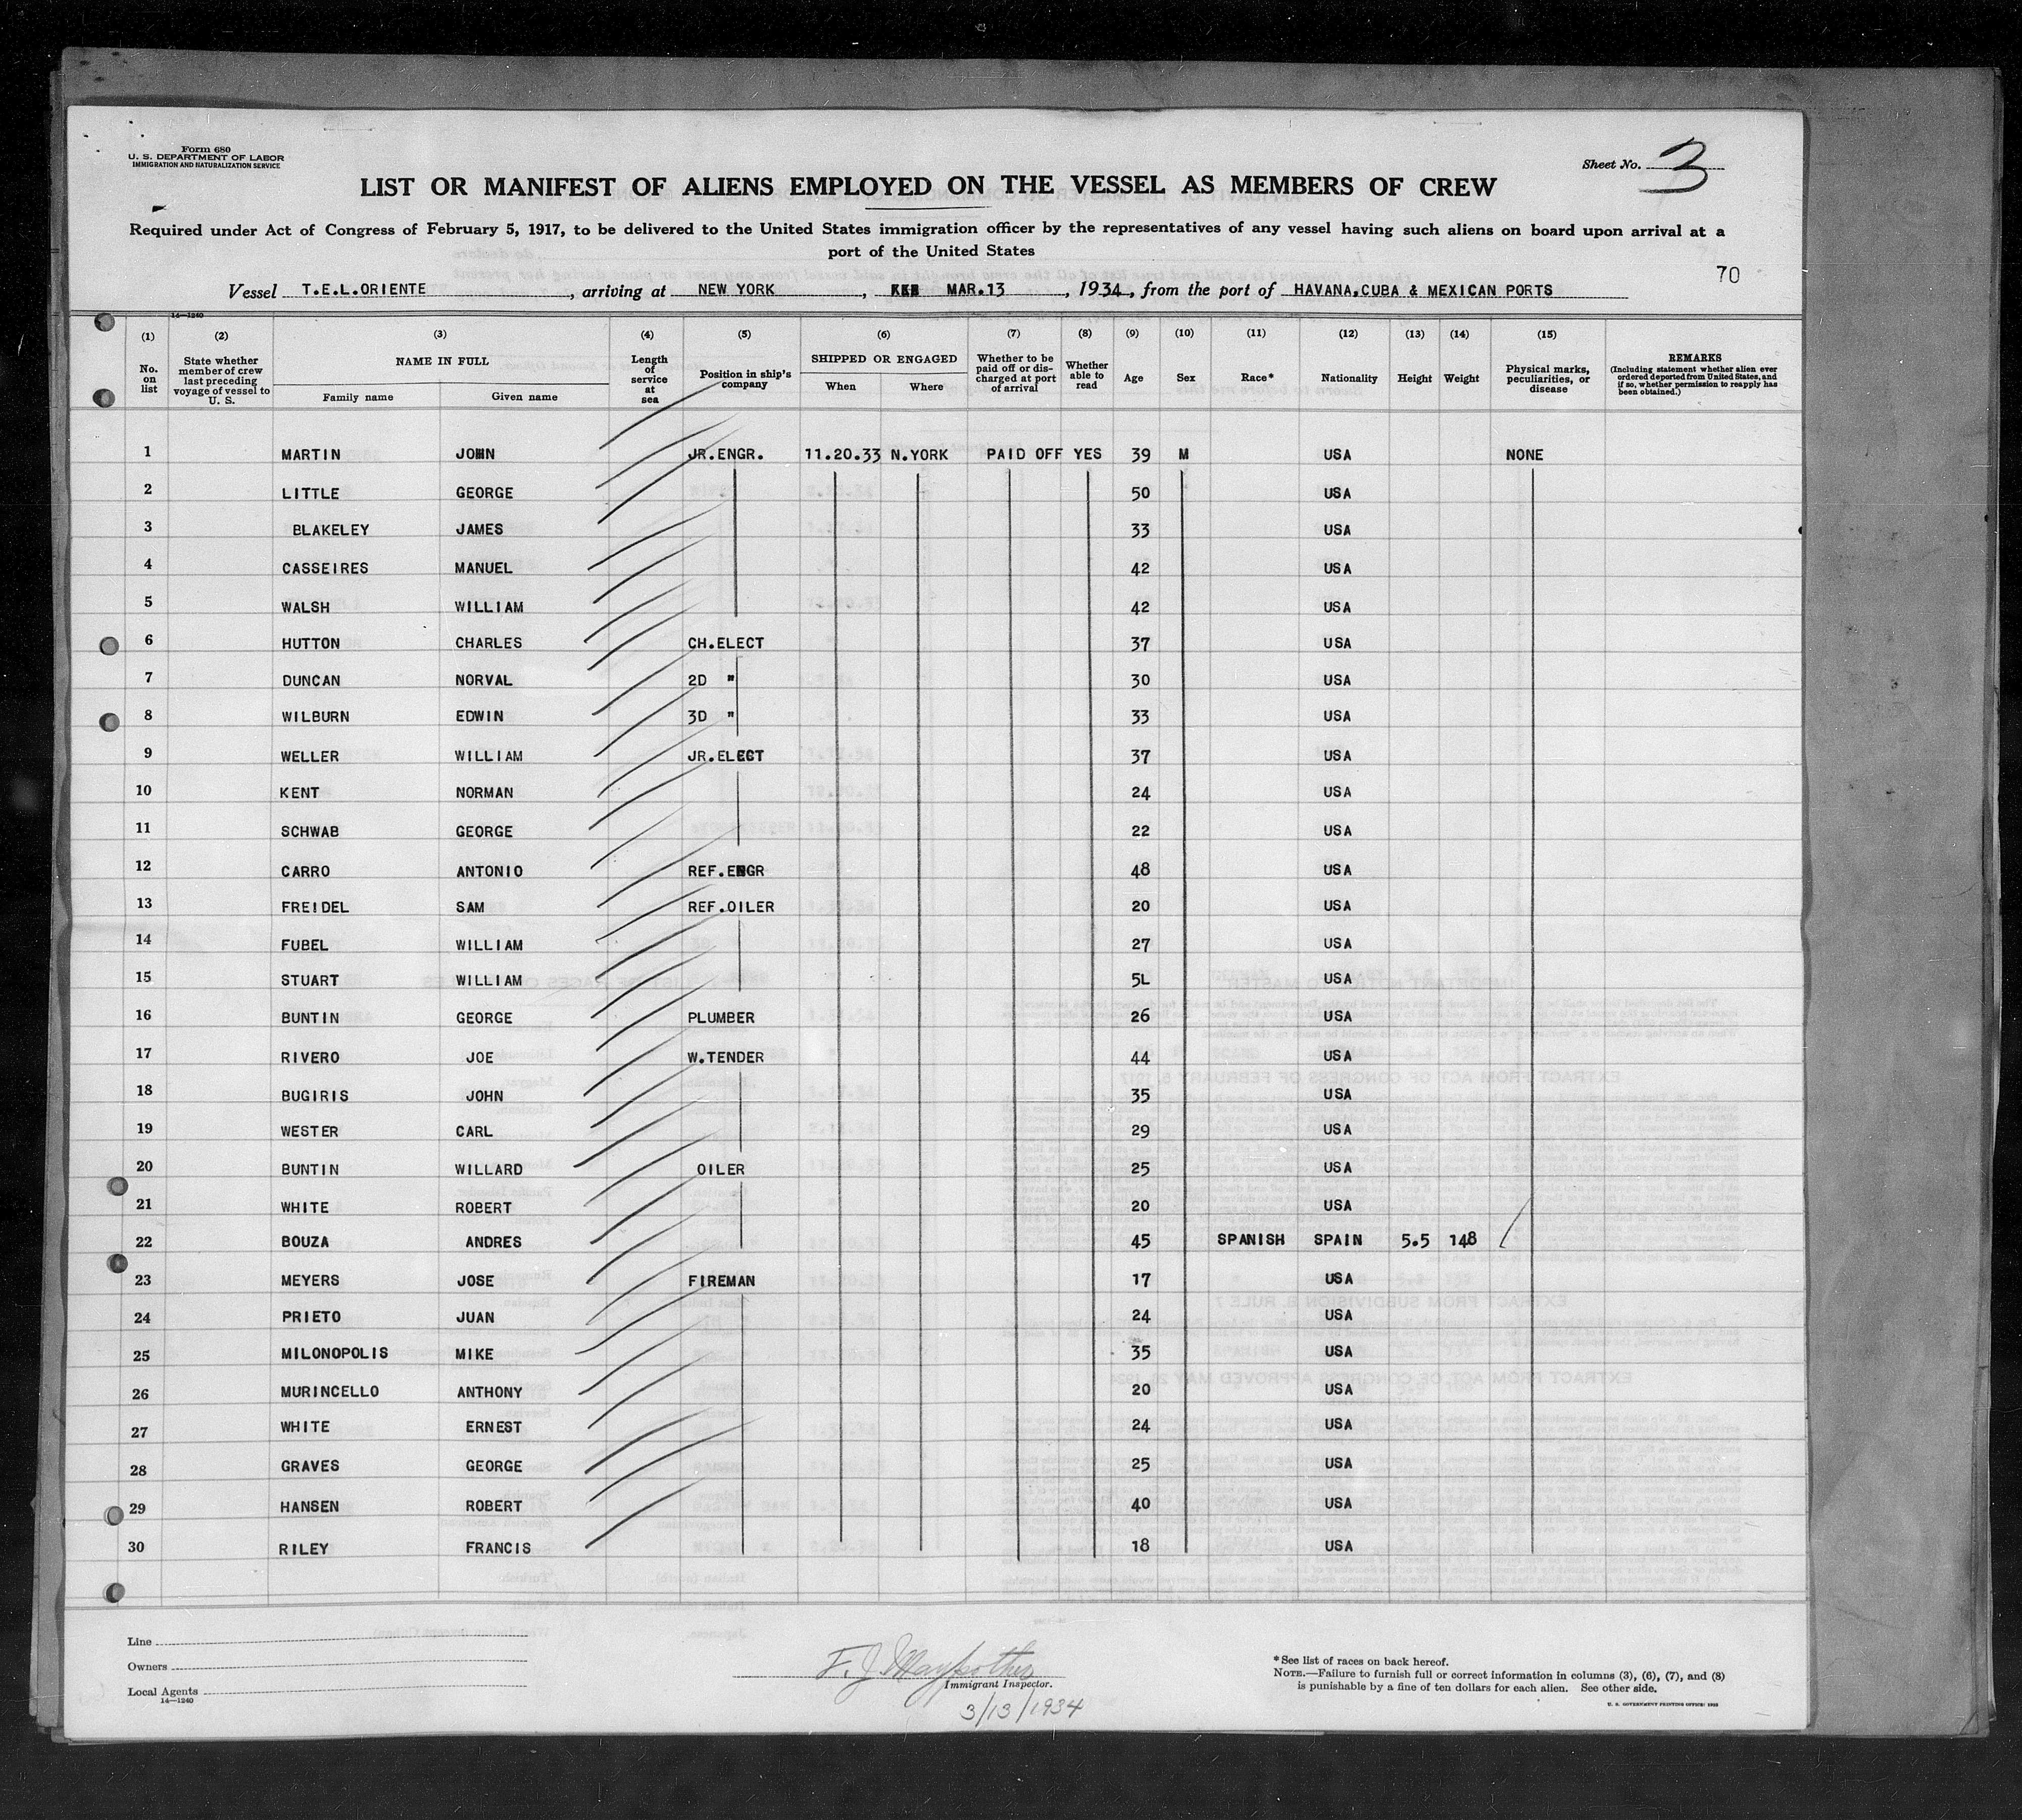 Form 680
U. S. DEPARTMENT OF LABOR
IMMIGRATION AND NATURALIZATION SERVICE
Sheet No. 3
LIST OR MANIFEST OF ALIENS EMPLOYED ON THE VESSEL AS MEMBERS OF CREW
Required under Act of Congress of February 5, 1917, to be delivered to the United States immigration officer by the representatives of any vessel having such aliens on board upon arrival at a
port of the United States
70
Vessel T.E.L.ORIENTE, arriving at NEW YORK, MAR.13, 1934, from the port of HAVANA,CUBA & MEXICAN PORTS
14—1240
(1) (2) (3) (4) (5) (6) (7) (8) (9) (10) (11) (12) (13) (14) (15)
No. on list State whether member of crew last preceding voyage of vessel to U. S. NAME IN FULL Family name Given name Length of service at sea Position in ship's company SHIPPED OR ENGAGED When Where Whether to be paid off or discharged at port of arrival Whether able to read Age Sex Race* Nationality Height Weight Physical marks, peculiarities, or disease REMARKS (Including statement whether alien ever ordered deported from United States, and if so, whether permission to reapply has been obtained.)
1 MARTIN JOHN JR.ENGR. 11.20.33 N.YORK PAID OFF YES 39 M USA NONE
2 LITTLE GEORGE 50 USA
3 BLAKELEY JAMES 33 USA
4 CASSEIRES MANUEL 42 USA
5 WALSH WILLIAM 42 USA
6 HUTTON CHARLES CH.ELECT 37 USA
7 DUNCAN NORVAL 2D " 30 USA
8 WILBURN EDWIN 3D " 33 USA
9 WELLER WILLIAM JR.ELECT 37 USA
10 KENT NORMAN 24 USA
11 SCHWAB GEORGE 22 USA
12 CARRO ANTONIO REF.ENGR 48 USA
13 FREIDEL SAM REF.OILER 20 USA
14 FUBEL WILLIAM 27 USA
15 STUART WILLIAM 5L USA
16 BUNTIN GEORGE PLUMBER 26 USA
17 RIVERO JOE W.TENDER 44 USA
18 BUGIRIS JOHN 35 USA
19 WESTER CARL 29 USA
20 BUNTIN WILLARD OILER 25 USA
21 WHITE ROBERT 20 USA
22 BOUZA ANDRES 45 SPANISH SPAIN 5.5 148
23 MEYERS JOSE FIREMAN 17 USA
24 PRIETO JUAN 24 USA
25 MILONOPOLIS MIKE 35 USA
26 MURINCELLO ANTHONY 20 USA
27 WHITE ERNEST 24 USA
28 GRAVES GEORGE 25 USA
29 HANSEN ROBERT 40 USA
30 RILEY FRANCIS 18 USA
Line
Owners
Local Agents
14—1240
F. J.
Immigrant Inspector.
3/13/1934
*See list of races on back hereof.
NOTE.—Failure to furnish full or correct information in columns (3), (6), (7), and (8)
is punishable by a fine of ten dollars for each alien. See other side.
U. S. GOVERNMENT PRINTING OFFICE: 1933